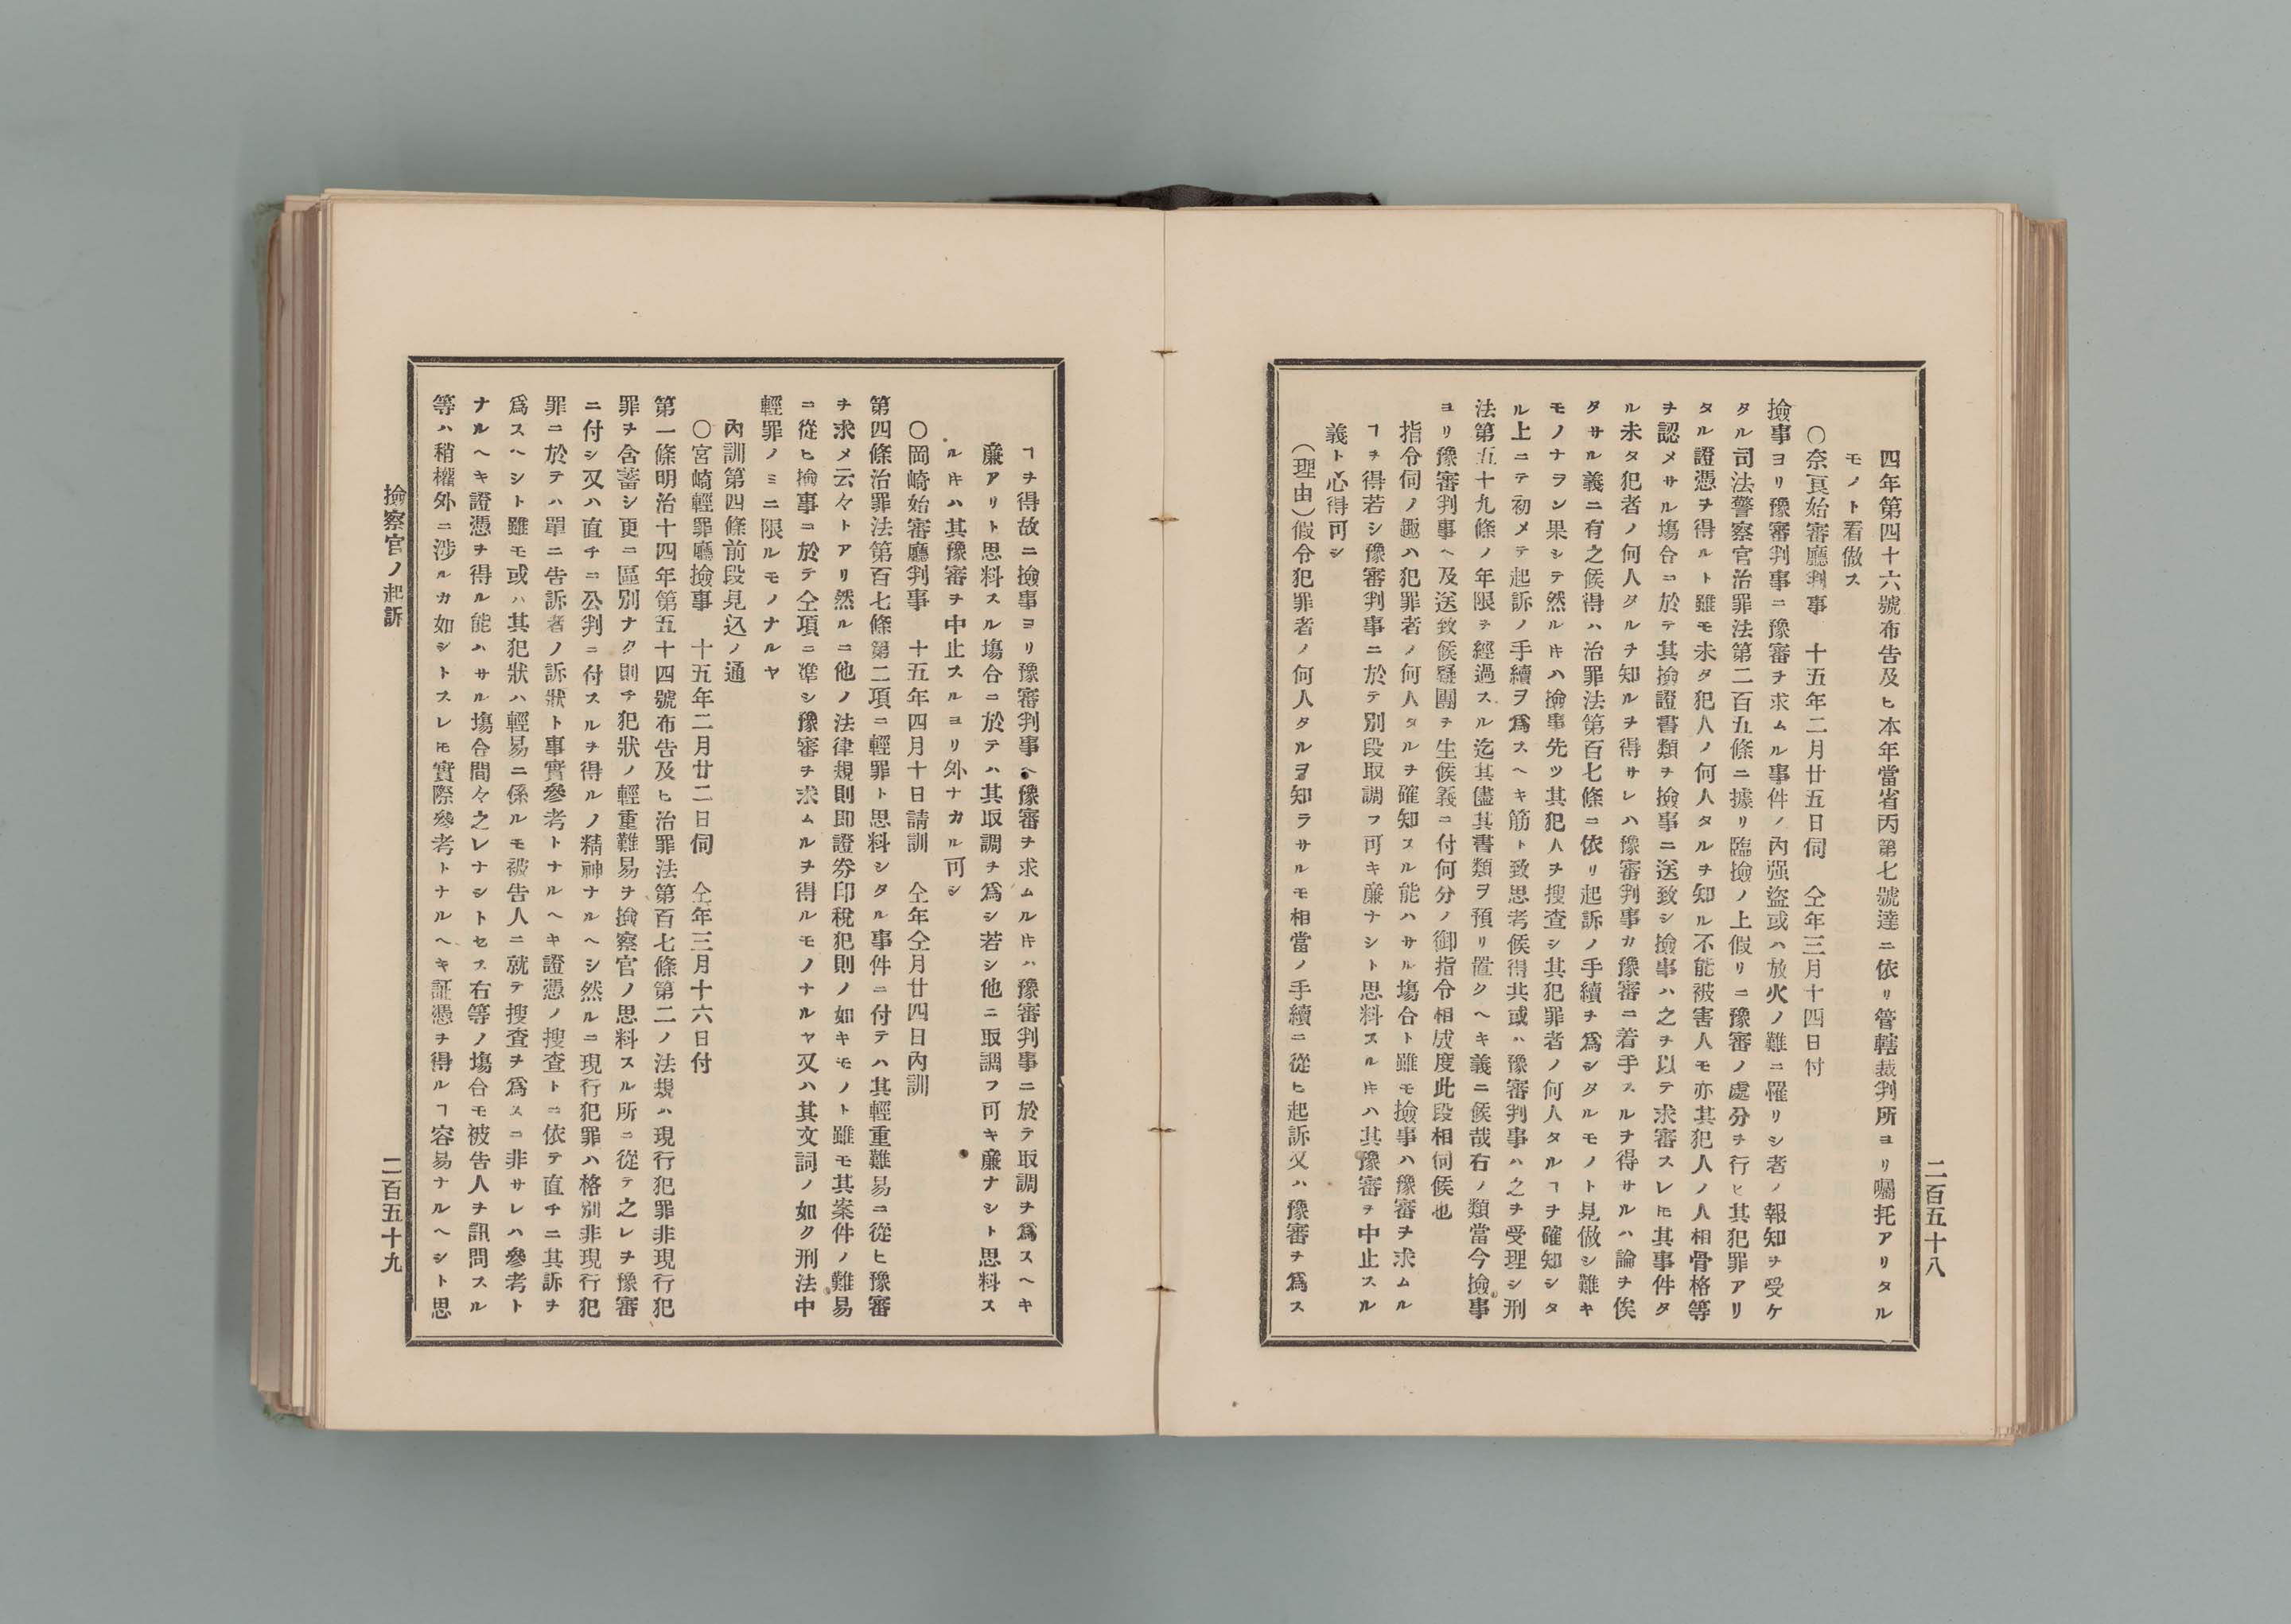 二百五十八
四年第四十六號布告及ヒ本年當省丙第七號達ニ依リ管轄裁判所ヨリ囑托アリタル
モノト看做ス
〇奈良始審廳判事　十五年二月廿五日伺　仝年三月十四日付
撿事ヨリ豫審判事ニ豫審ヲ求ムル事件ノ內强盜或ハ放火ノ難ニ罹リシ者ノ報知ヲ受ケ
タル司法警察官治罪法第二百五條ニ據リ臨撿ノ上假リニ豫審ノ處分ヲ行ヒ其犯罪アリ
タル證憑ヲ得ルト雖モ未タ犯人ノ何人タルヲ知ル不能被害人モ亦其犯人ノ人相骨格等
ヲ認メサル塲合ニ於テ其撿證書類ヲ撿事ニ送致シ撿事ハ之ヲ以テ求審スレㇳモ其事件タ
ル未タ犯者ノ何人タルヲ知ルヲ得サレハ豫審判事カ豫審ニ着手スルヲ得サルハ論ヲ俟
タサル義ニ有之候得ハ治罪法第百七條ニ依リ起訴ノ手續ヲ爲シタルモノト見做シ難キ
モノナラン果シテ然ルㇳキハ撿事先ツ其犯人ヲ搜査シ其犯罪者ノ何人タルヿヲ確知シタ
ル上ニテ初メテ起訴ノ手續ヲ爲スヘキ筋ト致思考候得共或ハ豫審判事ハ之ヲ受理シ刑
法第五十九條ノ年限ヲ經過スル迄其儘其書類ヲ預リ置クヘキ義ニ候哉右ノ類當今撿事
ヨリ豫審判事ヘ及送致候疑團ヲ生候義ニ付何分ノ御指令相成度此段相伺候也
指令伺ノ趣ハ犯罪者ノ何人タルヲ確知スル能ハサル塲合ト雖モ撿事ハ豫審ヲ求ムル
ヿヲ得若シ豫審判事ニ於テ別段取調フ可キ廉ナシト思料スルㇳキハ其豫審ヲ中止スル
義ト心得可シ
（理由）假令犯罪者ノ何人タルヲ知ラサルモ相當ノ手續ニ從ヒ起訴又ハ豫審ヲ爲ス
ヿヲ得故ニ撿事ヨリ豫審判事ヘ豫審ヲ求ムルㇳキハ豫審判事ニ於テ取調ヲ爲スヘキ
廉アリト思料スル塲合ニ於テハ其取調ヲ爲シ若シ他ニ取調フ可キ廉ナシト思料ス
ルㇳキハ其豫審ヲ中止スルヨリ外ナカル可シ
〇岡崎始審廳判事　十五年四月十日請訓　仝年仝月廿四日內訓
第四條治罪法第百七條第二項ニ輕罪ト思料シタル事件ニ付テハ其輕重難易ニ從ヒ豫審
ヲ求メ云々トアリ然ルニ他ノ法律規則即證券印稅犯則ノ如キモノト雖モ其案件ノ難易
ニ從ヒ撿事ニ於テ仝項ニ準シ豫審ヲ求ムルヲ得ルモノナルヤ又ハ其文詞ノ如ク刑法中
輕罪ノミニ限ルモノナルヤ
內訓第四條前段見込ノ通
〇宮崎輕罪廳撿事　十五年二月廿二日伺　仝年三月十六日付
第一條明治十四年第五十四號布告及ヒ治罪法第百七條第二ノ法規ハ現行犯罪非現行犯
罪ヲ含蓄シ更ニ區別ナク則チ犯狀ノ輕重難易ヲ撿察官ノ思料スル所ニ從テ之レヲ豫審
ニ付シ又ハ直チニ公判ニ付スルヲ得ルノ精神ナルヘシ然ルニ現行犯罪ハ格別非現行犯
罪ニ於テハ單ニ告訴者ノ訴狀ト事實參考トナルヘキ證憑ノ搜査トニ依テ直チニ其訴ヲ
爲スヘシト雖モ或ハ其犯狀ハ輕易ニ係ルモ被告人ニ就テ搜査ヲ爲スニ非サレハ參考ト
ナルヘキ證憑ヲ得ル能ハサル塲合間々之レナシトセス右等ノ塲合モ被告人ヲ訊問スル
等ハ稍權外ニ涉ルカ如シトスレㇳモ實際參考トナルヘキ証憑ヲ得ルヿ容易ナルヘシト思
撿察官ノ起訴
二百五十九